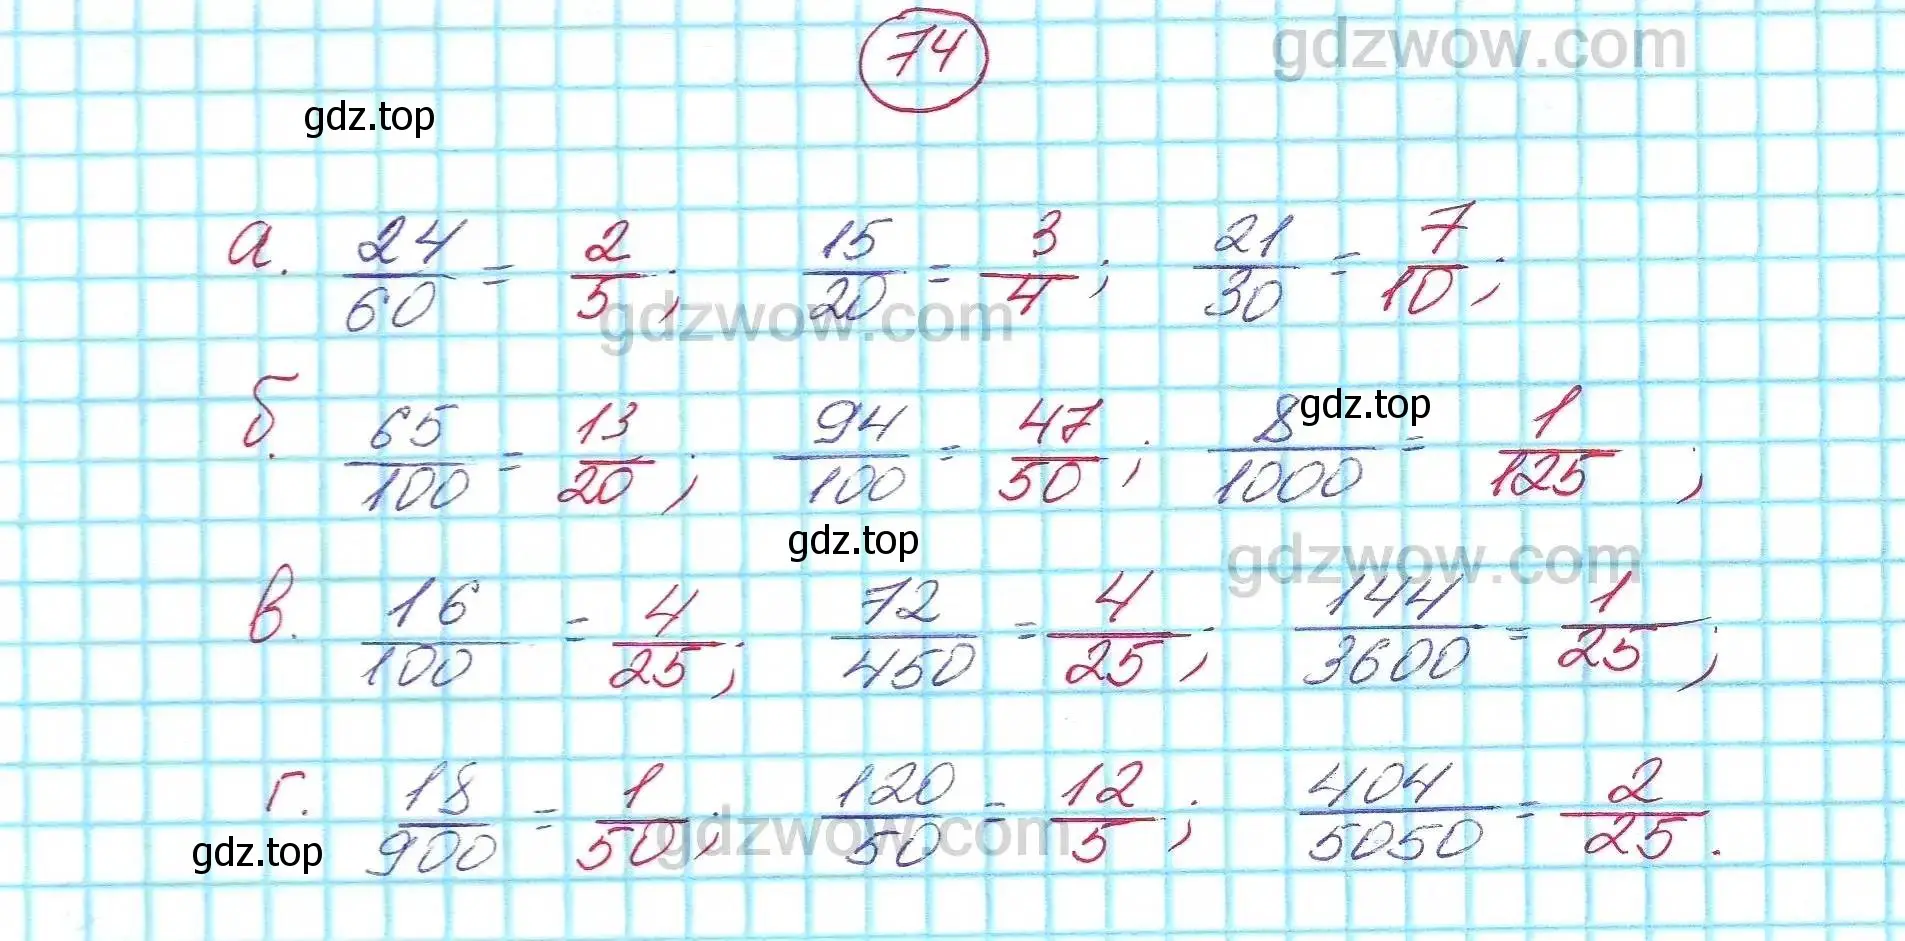 74
gdzwow.com
gdz.top
а. 24/60 = 2/5; 15/20 = 3/4; 21/30 = 7/10;
gdzwow.com
б. 65/100 = 13/20; 94/100 = 47/50; 8/1000 = 1/125;
gdz.top
gdz.top
gdzwow.com
в. 16/100 = 4/25; 72/450 = 4/25; 144/3600 = 1/25;
г. 18/900 = 1/50; 120/50 = 12/5; 404/5050 = 2/25.
gdz.top
gdzwow.com